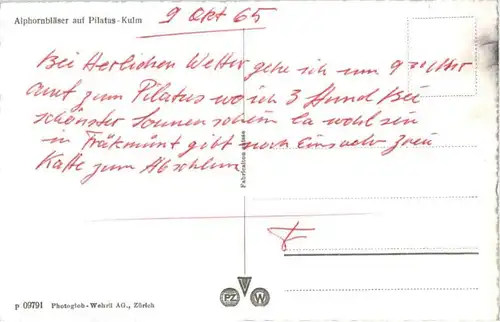 Alphornbläser auf Pilatus-Kulm
9 Okt 65
Bei Herlichen Wetter gehe ich um 9 30 Uhr
amt zum Pilatus wo ich 3 Stund Bei
schönster Sonnenschein La wohl sein
in Fräkmünt gibt noch Eins
Kaffe zum
Fabrication Suisse
F
PZ W
P 09791 Photoglob-Wehrli AG., Zürich